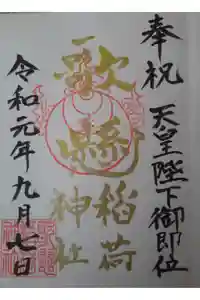 奉祝 天皇陛下御即位
歌懸
稲荷
神社
令和元年九月七日